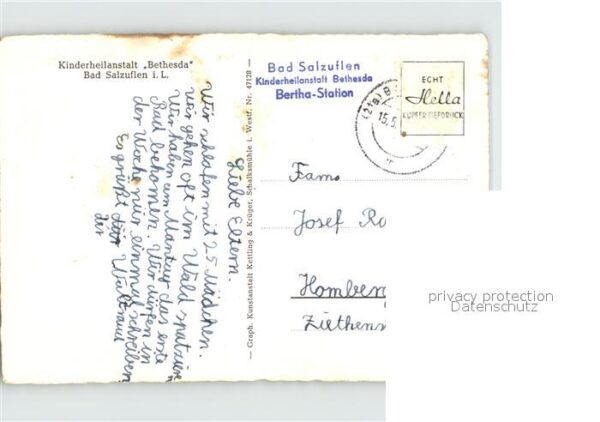 Kinderheilanstalt „Bethesda"
Bad Salzuflen i. L.
Liebe Eltern.
Wir schlafen mit 25 Mädchen.
wir gehen oft im Wald spatzieren
Wir haben am Montag das erste
Bad bekomen. Wir dürfen in
der Woche nur einmal schreiben
Es grüßt
Waltraud
— Graph. Kunstanstalt Kettling & Krüger, Schalksmühle i. Westf. Nr. 47128 —
Bad Salzuflen
Kinderheilanstalt Bethesda
Bertha-Station
(21a) B
15.5
ECHT
Hella
KUPFERTIEFDRUCK
Fam.
Josef Ro
Homber
Ziethens
privacy protection
Datenschutz